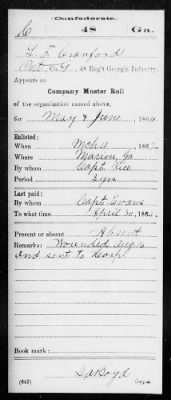 Confederate.
C 48 Ga.
L. F. Crawford
Pvt, Co. G, 48 Reg't Georgia Infantry.
Appears on
Company Muster Roll
of the organization named above,
for May & June, 1864.
Enlisted:
When Mch 4, 1862
Where Macon, Ga
By whom Capt.
Period 3 yrs
Last paid:
By whom Capt. Evans
To what time April 30, 186
Present or absent Absent
Remarks: Wounded
and sent to
Book mark:
(642) Copyist.